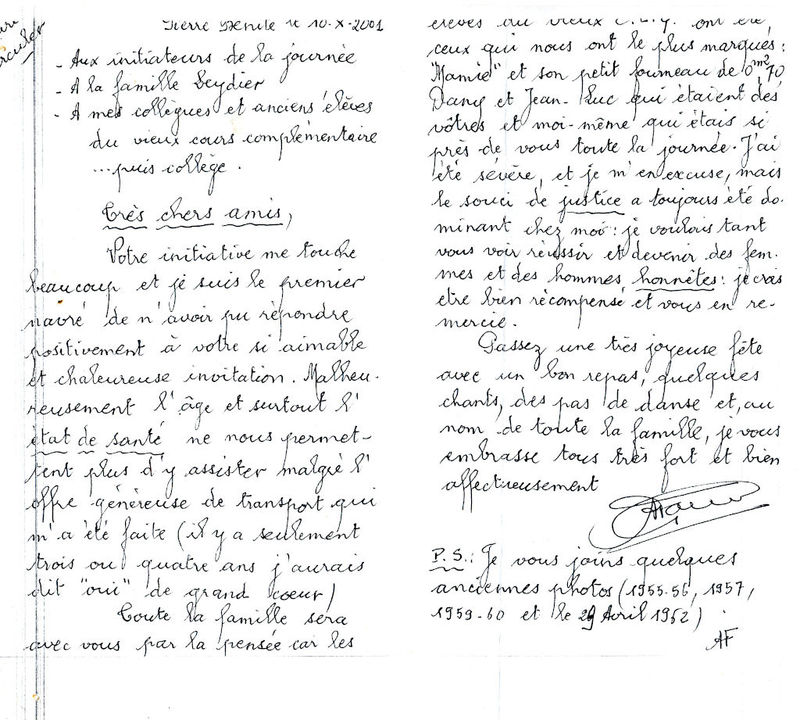 le 10-X-2001
- Aux initiateurs de la journée
- A la famille Seydier
- A mes collègues et anciens élèves
du vieux cours complémentaire
...puis collège.
Très chers amis,
Votre initiative me touche
beaucoup et je suis le premier
navré de n'avoir pu répondre
positivement à votre si aimable
et chaleureuse invitation. Malheu-
reusement l'âge et surtout l'
état de santé ne nous permet-
tent plus d'y assister malgré l'
offre généreuse de transport qui
m'a été faite (il y a seulement
trois ou quatre ans j'aurais
dit "oui" de grand coeur)
Toute la famille sera
avec vous par la pensée car les
élèves du vieux C.E.G. ont été
ceux qui nous ont le plus marqués :
"Mamie" et son petit fourneau de 0m²,70
Dany et Jean-Luc qui étaient des
vôtres et moi-même qui étais si
près de vous toute la journée. J'ai
été sévère, et je m'en excuse, mais
le souci de justice a toujours été do-
minant chez moi : je voulais tant
vous voir réussir et devenir des fem-
mes et des hommes honnêtes : je crois
etre bien récompensé et vous en re-
mercie.
Passez une très joyeuse fête
avec un bon repas, quelques
chants, des pas de danse et, au
nom de toute la famille, je vous
embrasse tous très fort et bien
affectueusement
P.S.: Je vous joins quelques
anciennes photos (1955-56, 1957,
1959-60 et le 29 Avril 1962)
AF